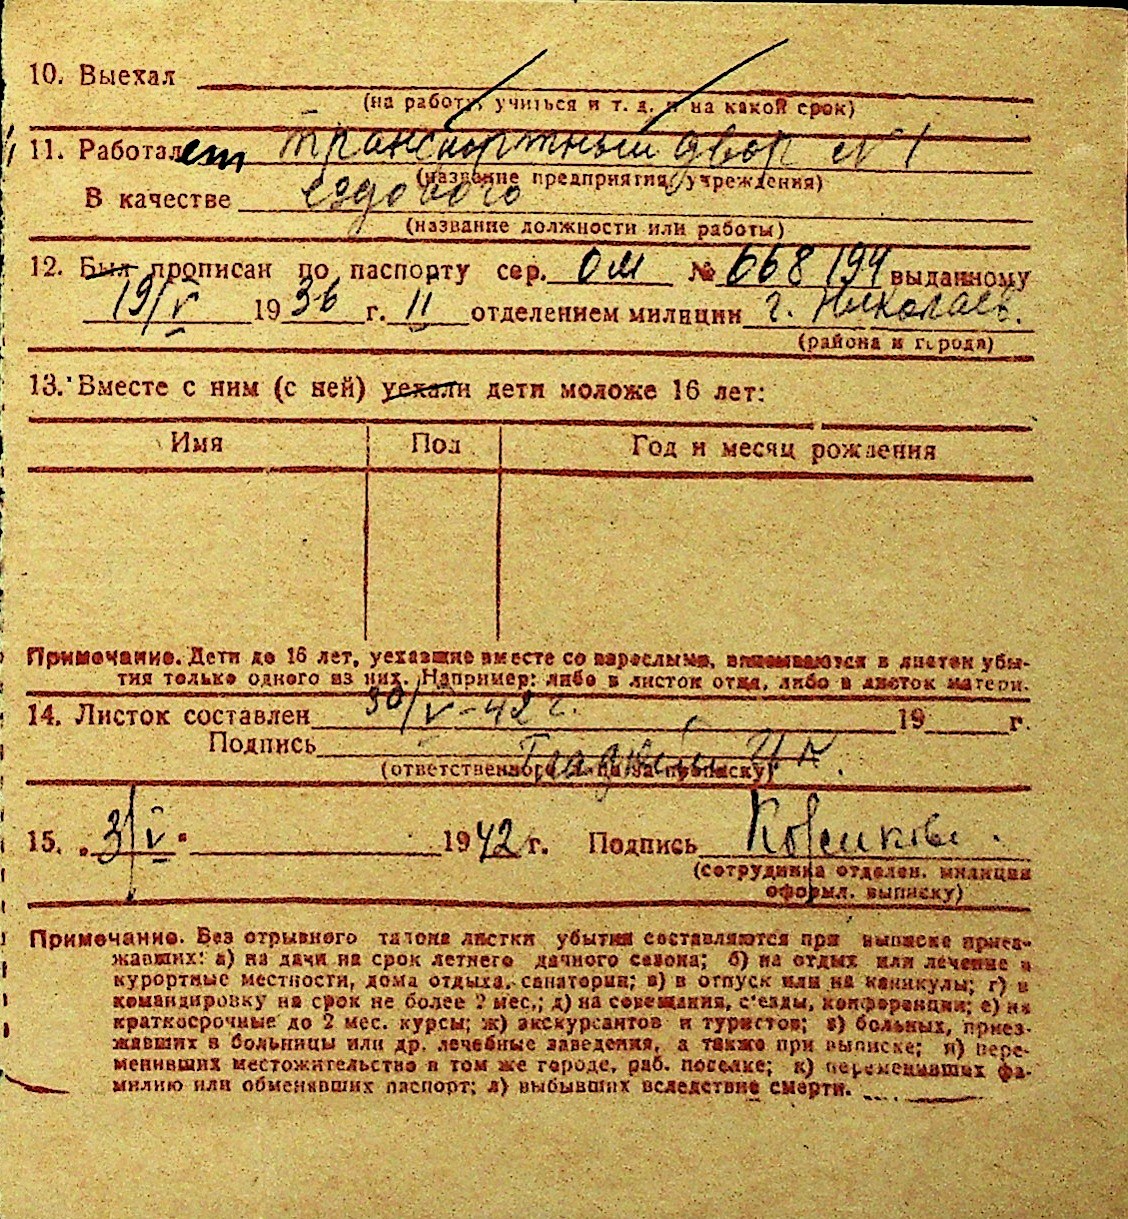 10. Выехал
(на работу, учиться и т. д. и на какой срок)
11. Работает транспортный двор № 1
(название предприятия, учреждения)
В качестве ездового
(название должности или работы)
12. Был прописан по паспорту сер. ОМ № 668194 выданному
19/V 1936 г. II отделением милиции г. Николаев.
(района и города)
13. Вместе с ним (с ней) уехали дети моложе 16 лет:
Имя Пол Год и месяц рождения
Примечание. Дети до 16 лет, уехавшие вместе со взрослыми, вписываются в листок убы-
тия только одного из них. Например: либо в листок отца, либо в листок матери.
14. Листок составлен 30/V-42 г. 19 г.
Подпись
(ответственного лица за прописку)
15. „31/V“ 1942 г. Подпись
(сотрудника отделен. милиции
оформл. выписку)
Примечание. Без отрывного талона листки убытия составляются при выписке приез-
жавших: а) на дачи на срок летнего дачного сезона; б) на отдых или лечение в
курортные местности, дома отдыха, санатории; в) в отпуск или на каникулы; г) в
командировку на срок не более 2 мес.; д) на совещания, с'езды, конференции; е) на
краткосрочные до 2 мес. курсы; ж) экскурсантов и туристов; з) больных, приез-
жавших в больницы или др. лечебные заведения, а также при выписке; и) пере-
менивших местожительство в том же городе, раб. поселке; к) переменивших фа-
милию или обменявших паспорт; л) выбывших вследствие смерти.